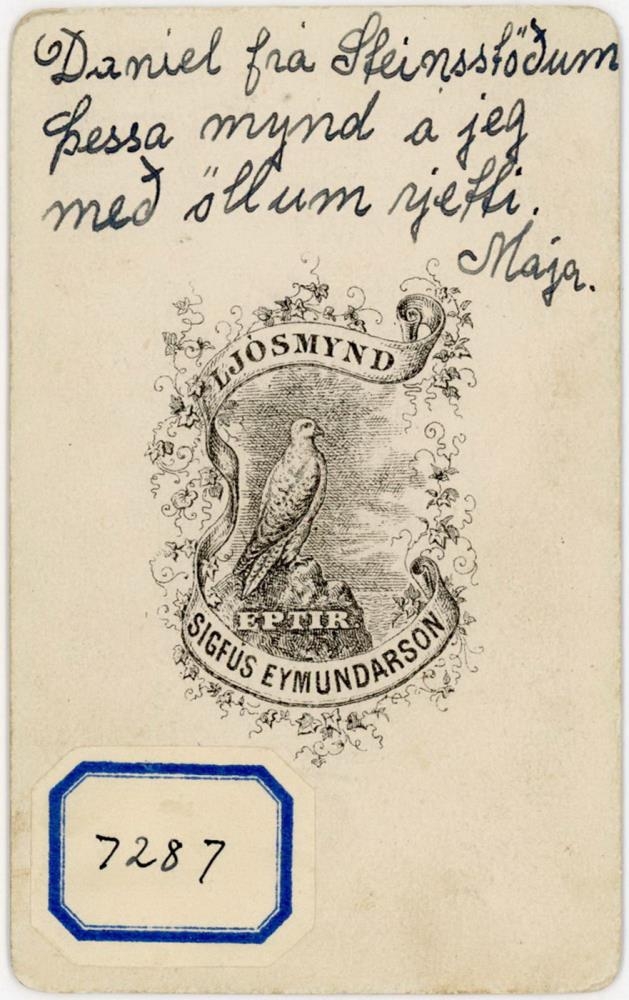 Daníel frá Steinsstöðum
Þessa mynd á jeg
með öllum rjetti.
Mája.
LJÓSMYND
EPTIR
SIGFÚS EYMUNDARSON
7287